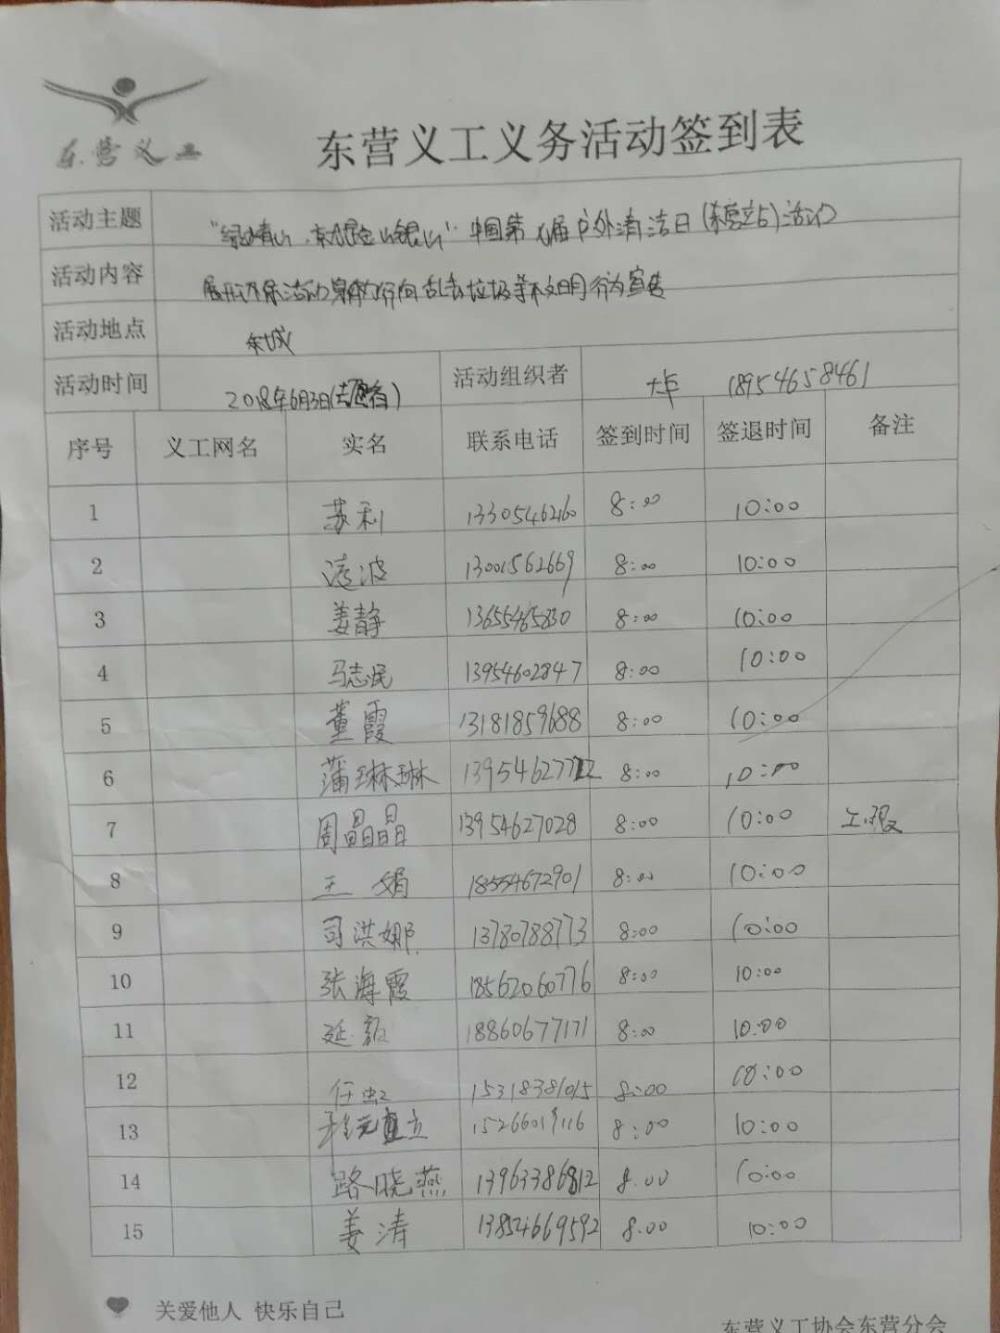 东营义工
东营义工义务活动签到表
活动主题 中国第 届户外清洁日(东营站)活动
活动内容 垃圾等不文明行为宣传
活动地点 东城
活动时间 2018年6月3日 活动组织者 18954658461
序号 义工网名 实名 联系电话 签到时间 签退时间 备注
1 苏利 13305462160 8:00 10:00
2 凌波 13001562669 8:00 10:00
3 姜静 13655465830 8:00 10:00
4 马志民 13954602847 8:00 10:00
5 董霞 13181859688 8:00 10:00
6 蒲琳琳 8:00 10:00
7 周晶晶 13954627028 8:00 10:00
8 王娟 18554672901 8:00 10:00
9 司洪娜 13780788773 8:00 10:00
10 张海霞 18562060776 8:00 10:00
11 延毅 18860677171 8:00 10:00
12 任虹 15318381015 8:00 10:00
13 15266019116 8:00 10:00
14 路晓燕 13963386812 8:00 10:00
15 姜清 13854669592 8:00 10:00
关爱他人 快乐自己
东营义工协会东营分会